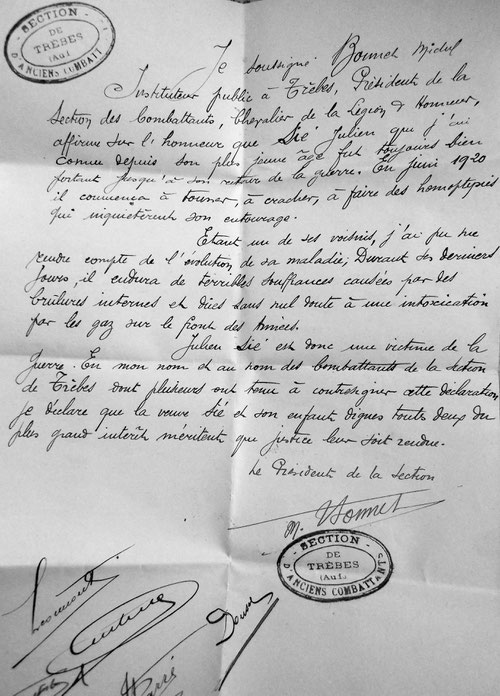 SECTION
DE
TRÈBES
(Au
D'ANCIENS COMBATT
Je soussigné Bonnet Michel
Instituteur public à Trèbes, Président de la
Section des Combattants, Chevalier de la Légion d'Honneur,
affirme sur l'honneur que Sié Julien que j'ai
connu depuis son plus jeune âge fut toujours bien
portant jusqu'à son retour de la guerre. En Juin 1920
il commença à tousser, à cracher, à faire des hémoptysies
qui inquiétèrent son entourage.
Etant un de ses voisins, j'ai pu me
rendre compte de l'évolution de sa maladie; Durant ses derniers
jours, il endura de terribles souffrances causées par des
brûlures internes et dues sans nul doute à une intoxication
par les gaz sur le front des armées.
Julien Sié est donc une victime de la
guerre. En mon nom et au nom des combattants de la section
de Trèbes dont plusieurs ont tenu à contresigner cette déclaration
je déclare que la veuve Sié et son enfant dignes touts deux du
plus grand intérêt méritent que justice leur soit rendue.
Le Président de la Section
M. Bonnet
SECTION
DE
TRÈBES
(Au
D'ANCIENS COMBATTANTS